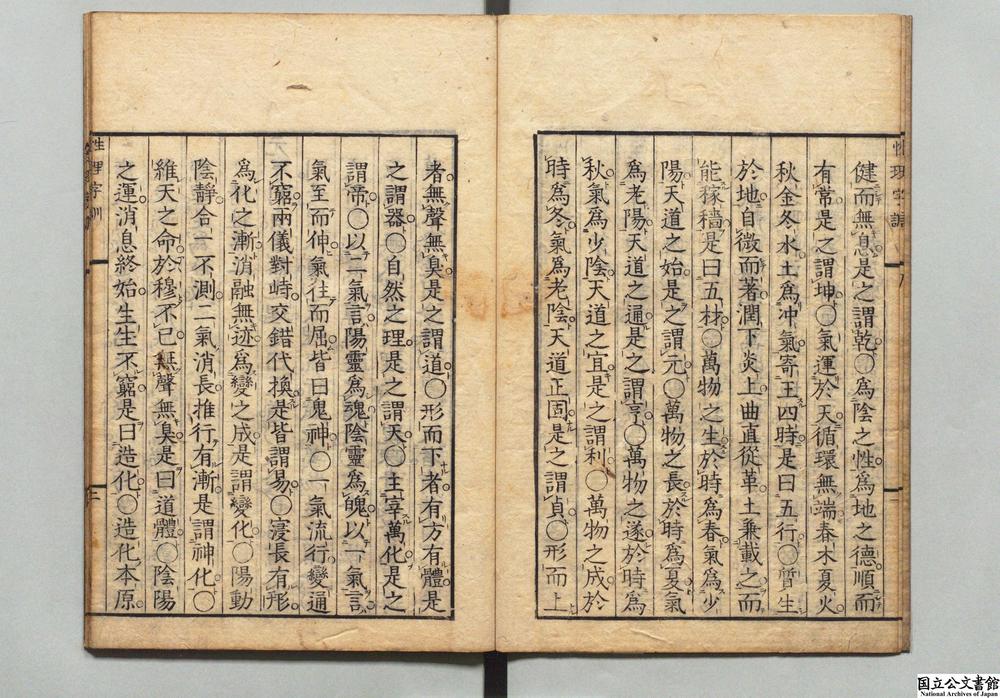 健而無息是之謂乾○爲陰之性爲地之德順而
有常是之謂坤○氣運於天循環無端春木夏火
秋金冬水土爲冲氣寄王四時是曰五行○質生
於地自微而著潤下炎上曲直從革土兼載之而
能稼穡是曰五材○萬物之生於時爲春氣爲少
陽天道之始是之謂元○萬物之長於時爲夏氣
爲老陽天道之通是之謂亨○萬物之遂於時爲
秋氣爲少陰天道之宜是之謂利○萬物之成於
時爲冬氣爲老陰天道正固是之謂貞○形而上
者無聲無臭是之謂道○形而下者有方有體是
之謂器○自然之理是之謂天○主宰萬化是之
謂帝○以二氣言陽靈爲魂陰靈爲魄以一氣言
氣至而伸氣往而屈皆曰鬼神○一氣流行變通
不窮兩儀對峙交錯代換是皆謂易○寖長有形
爲化之漸消融無迹爲變之成是謂變化○陽動
陰靜合一不測二氣消長推行有漸是謂神化○
維天之命於穆不已無聲無臭是曰道體○陰陽
之運消息終始生生不窮是曰造化○造化本原
性理字訓
三
国立公文書館
National Archives of Japan